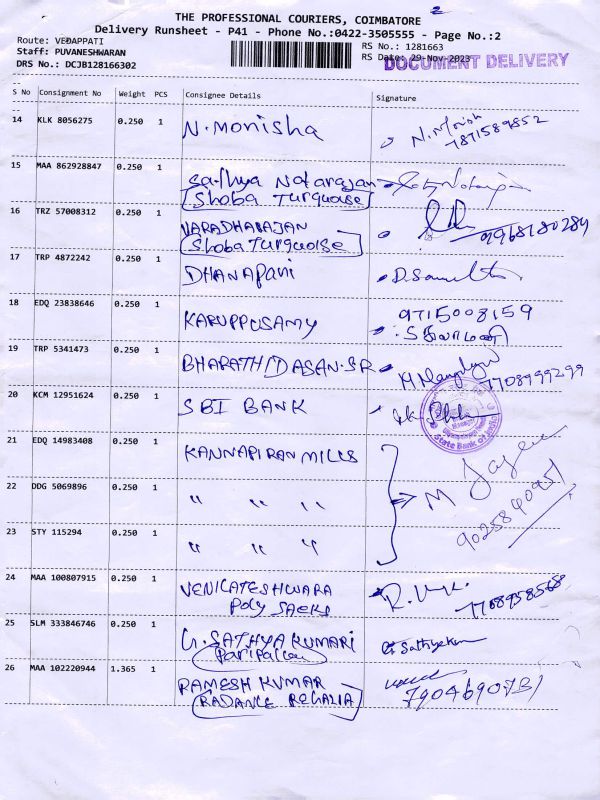 THE PROFESSIONAL COURIERS, COIMBATORE
Delivery Runsheet - P41 - Phone No.:0422-3505555 - Page No.:2
Route: VEDAPPATI
Staff: PUVANESHWARAN
DRS No.: DCJB128166302
RS No.: 1281663
RS Date: 29-Nov-2023
DOCUMENT DELIVERY
S No Consignment No Weight PCS Consignee Details Signature
14 KLK 8056275 0.250 1 N. MONISHA N. Monish
7871589852
15 MAA 862928847 0.250 1 Sathya Natarajan
Shoba Turquoise
16 TRZ 57008312 0.250 1 VARADHARAJAN
Shoba Turquoise
17 TRP 4872242 0.250 1 DHANAPANI
18 EDQ 23838646 0.250 1 KARUPPUSAMY 9715008159
19 TRP 5341473 0.250 1 BHARATHIDASAN.SR
7708999299
20 KCM 12951624 0.250 1 SBI BANK
State Bank of India
21 EDQ 14983408 0.250 1 KANNAPIRAN MILLS
22 DDG 5069896 0.250 1 " " "
23 STY 115294 0.250 1 " " "
24 MAA 100807915 0.250 1 VENKATESHWARA
Poly SACKS
25 SLM 333846746 0.250 1 G. SATHYA KUMARI
26 MAA 102220944 1.365 1 RAMESH KUMAR
RADANCE REGALIA